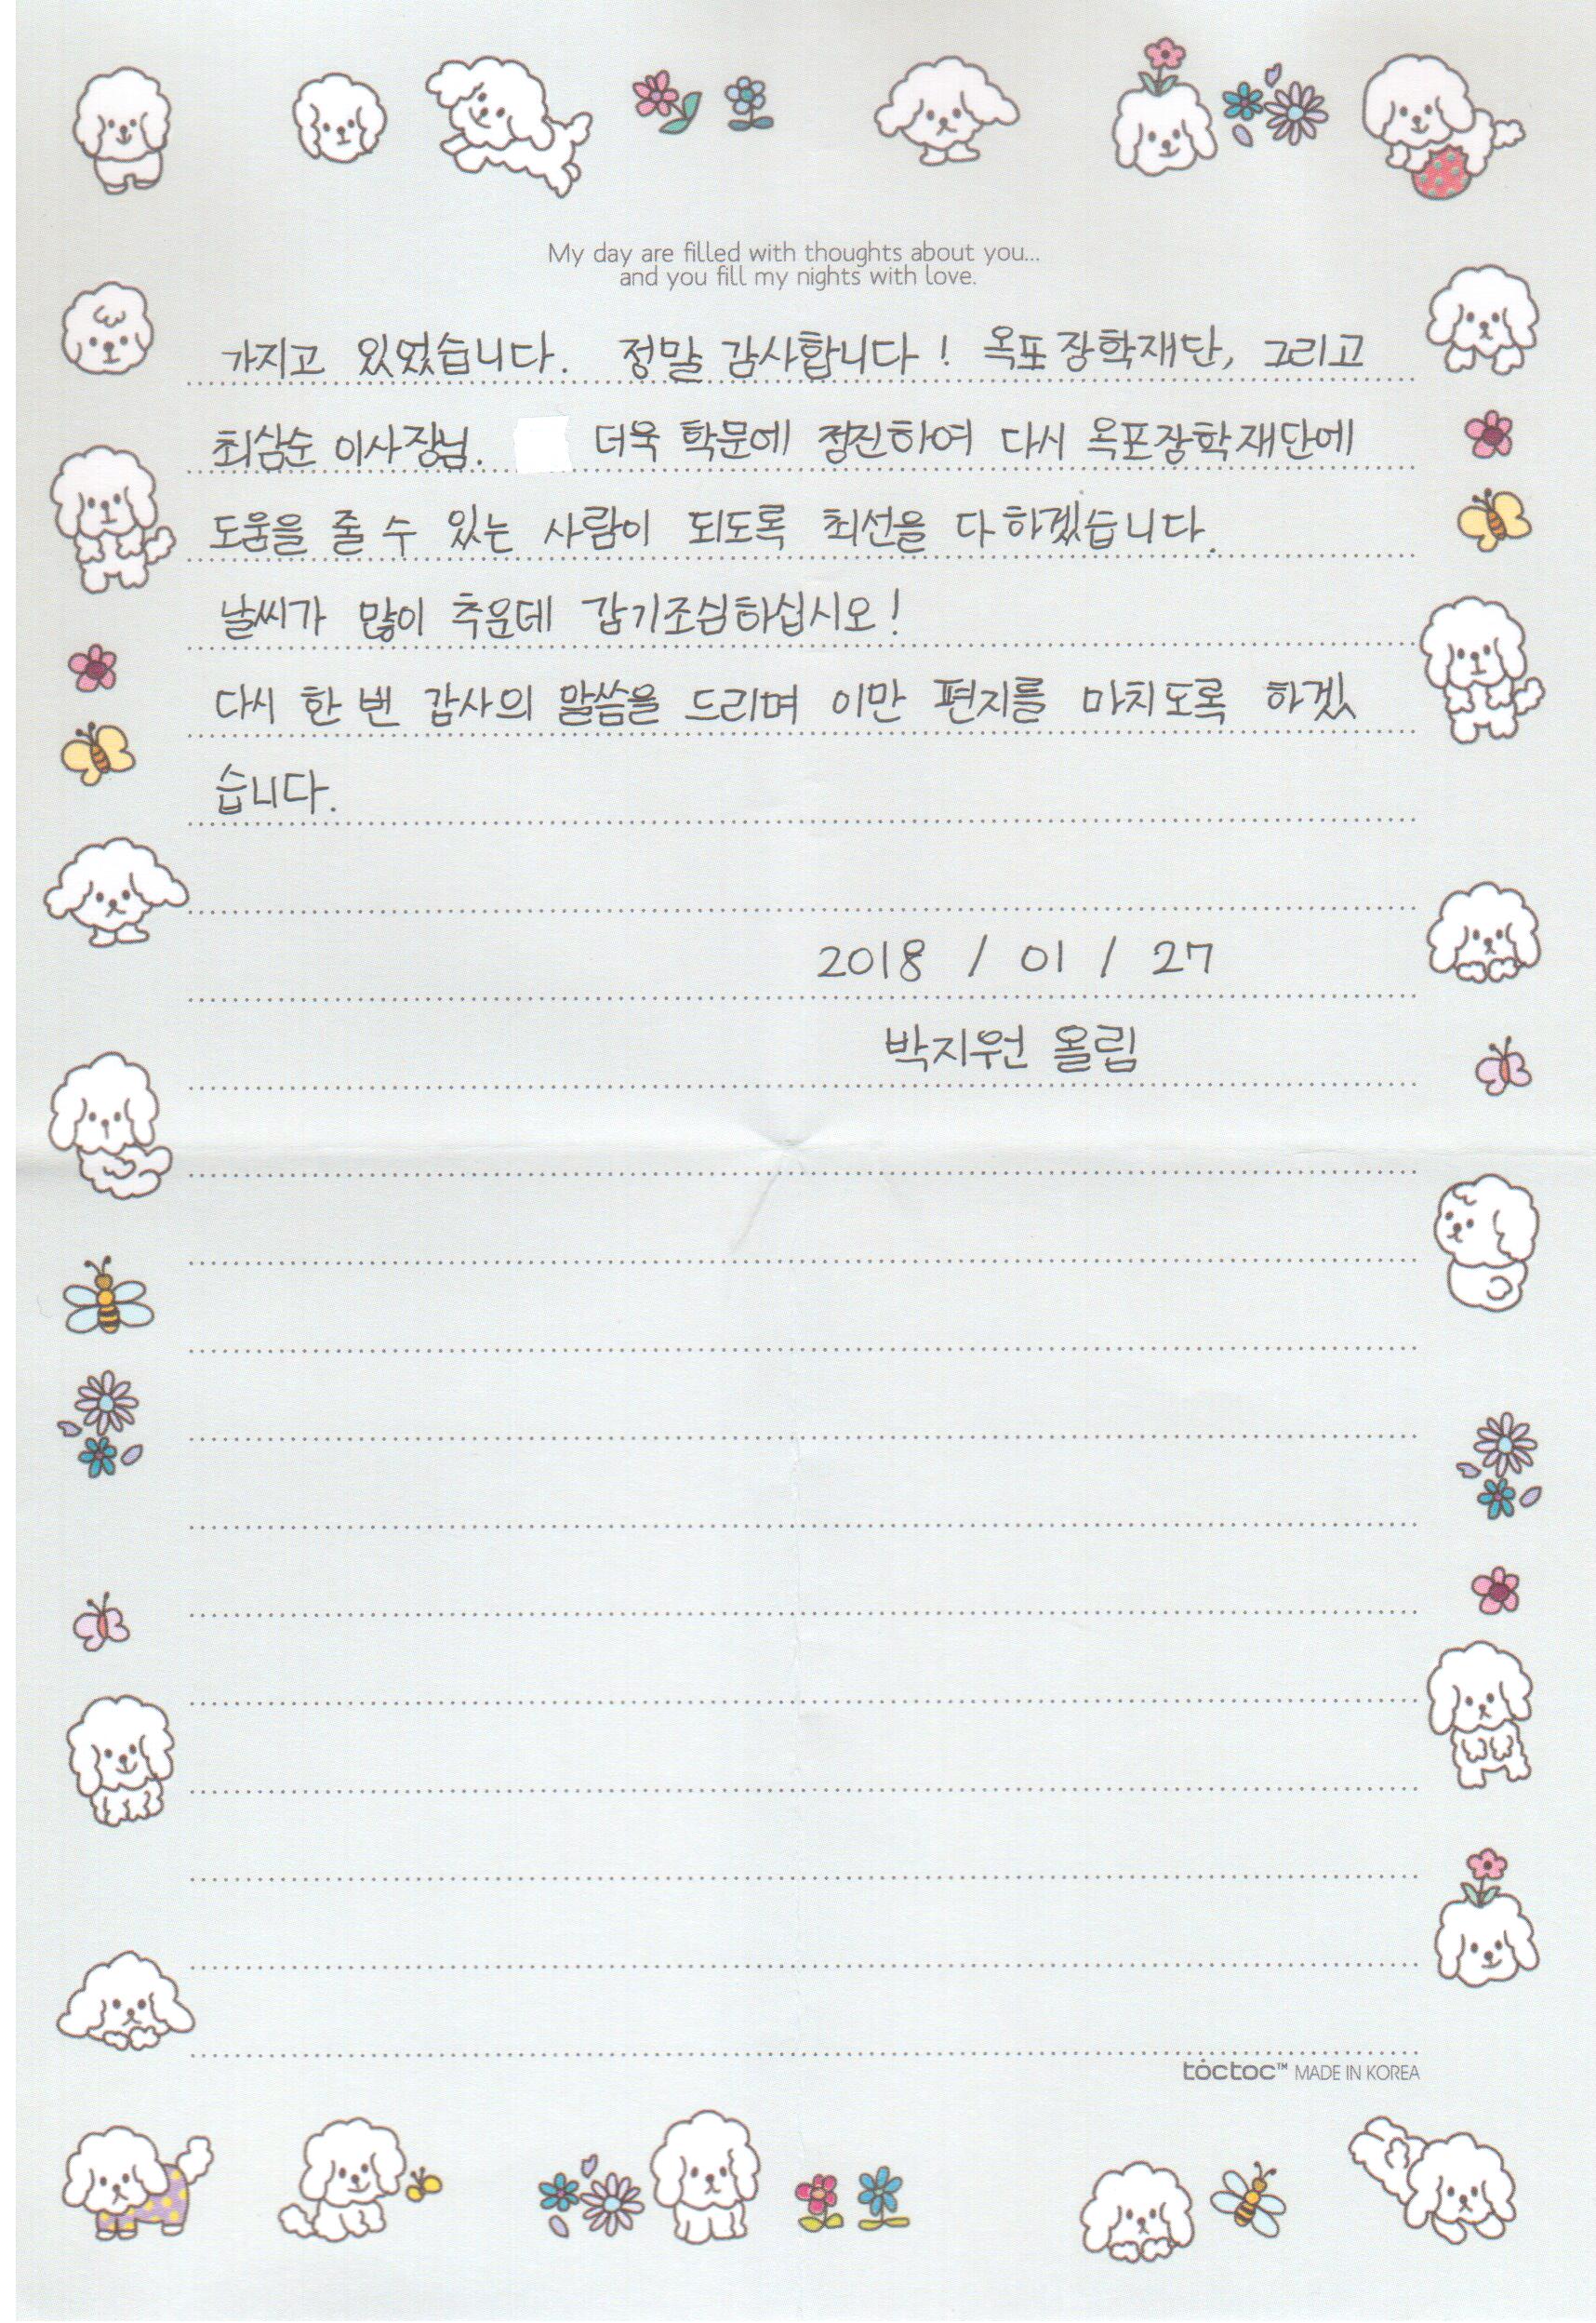 My day are filled with thoughts about you...
and you fill my nights with love.
가지고 있었습니다. 정말 감사합니다! 옥포장학재단, 그리고
최삼순 이사장님. 더욱 학문에 정진하여 다시 옥포장학재단에
도움을 줄 수 있는 사람이 되도록 최선을 다하겠습니다.
날씨가 많이 추운데 감기조심하십시오!
다시 한 번 감사의 말씀을 드리며 이만 편지를 마치도록 하겠
습니다.
2018 / 01 / 27
박지원 올림
tóctoc™ MADE IN KOREA